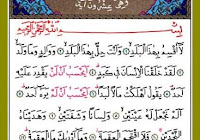 وهي عشرون آية
بسم الله الرحمن الرحيم
لَا أُقْسِمُ بِهَذَا الْبَلَدِ وَأَنْتَ حِلٌّ بِهَذَا الْبَلَدِ وَوَالِدٍ وَمَا وَلَدَ
لَقَدْ خَلَقْنَا الْإِنْسَانَ فِي كَبَدٍ أَيَحْسَبُ أَنْ لَنْ يَقْدِرَ عَلَيْهِ
يَقُولُ أَهْلَكْتُ مَالًا لُبَدًا أَيَحْسَبُ أَنْ لَمْ يَرَهُ
نَجْعَلْ لَهُ عَيْنَيْنِ وَلِسَانًا وَشَفَتَيْنِ وَهَدَيْنَاهُ